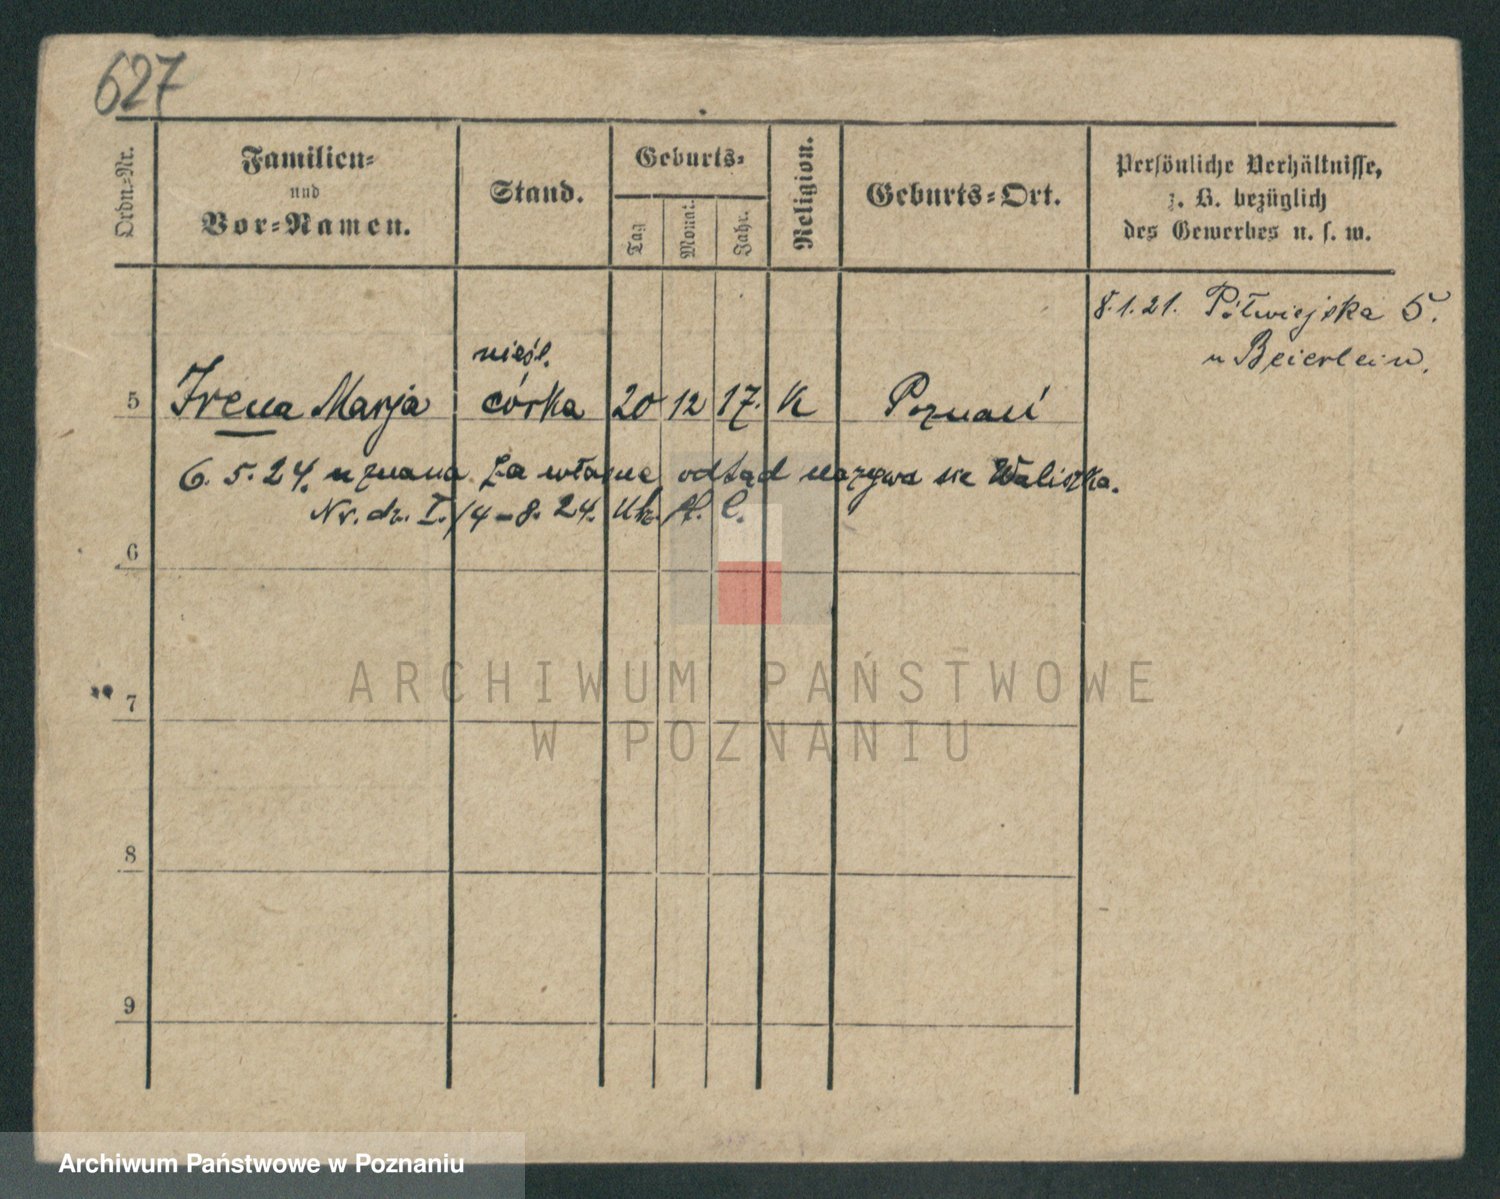 627
Ordn.-Nr.
Familien-
und
Vor-Namen.
Stand.
Geburts-
Tag
Monat.
Jahr.
Religion.
Geburts-Ort.
Persönliche Verhältnisse,
z. B. bezüglich
des Gewerbes u. s. w.
8.1.21. Półwiejska 5.
u Beierlein.
nieśl.
5 Irena Marja córka 20 12 17. K Poznań
6. 5. 24. uznana za własne odtąd nazywa sie Waliszka.
Nr. dz. I. 14-8. 24.
6
7
8
9
ARCHIWUM PAŃSTWOWE
W POZNANIU
Archiwum Państwowe w Poznaniu